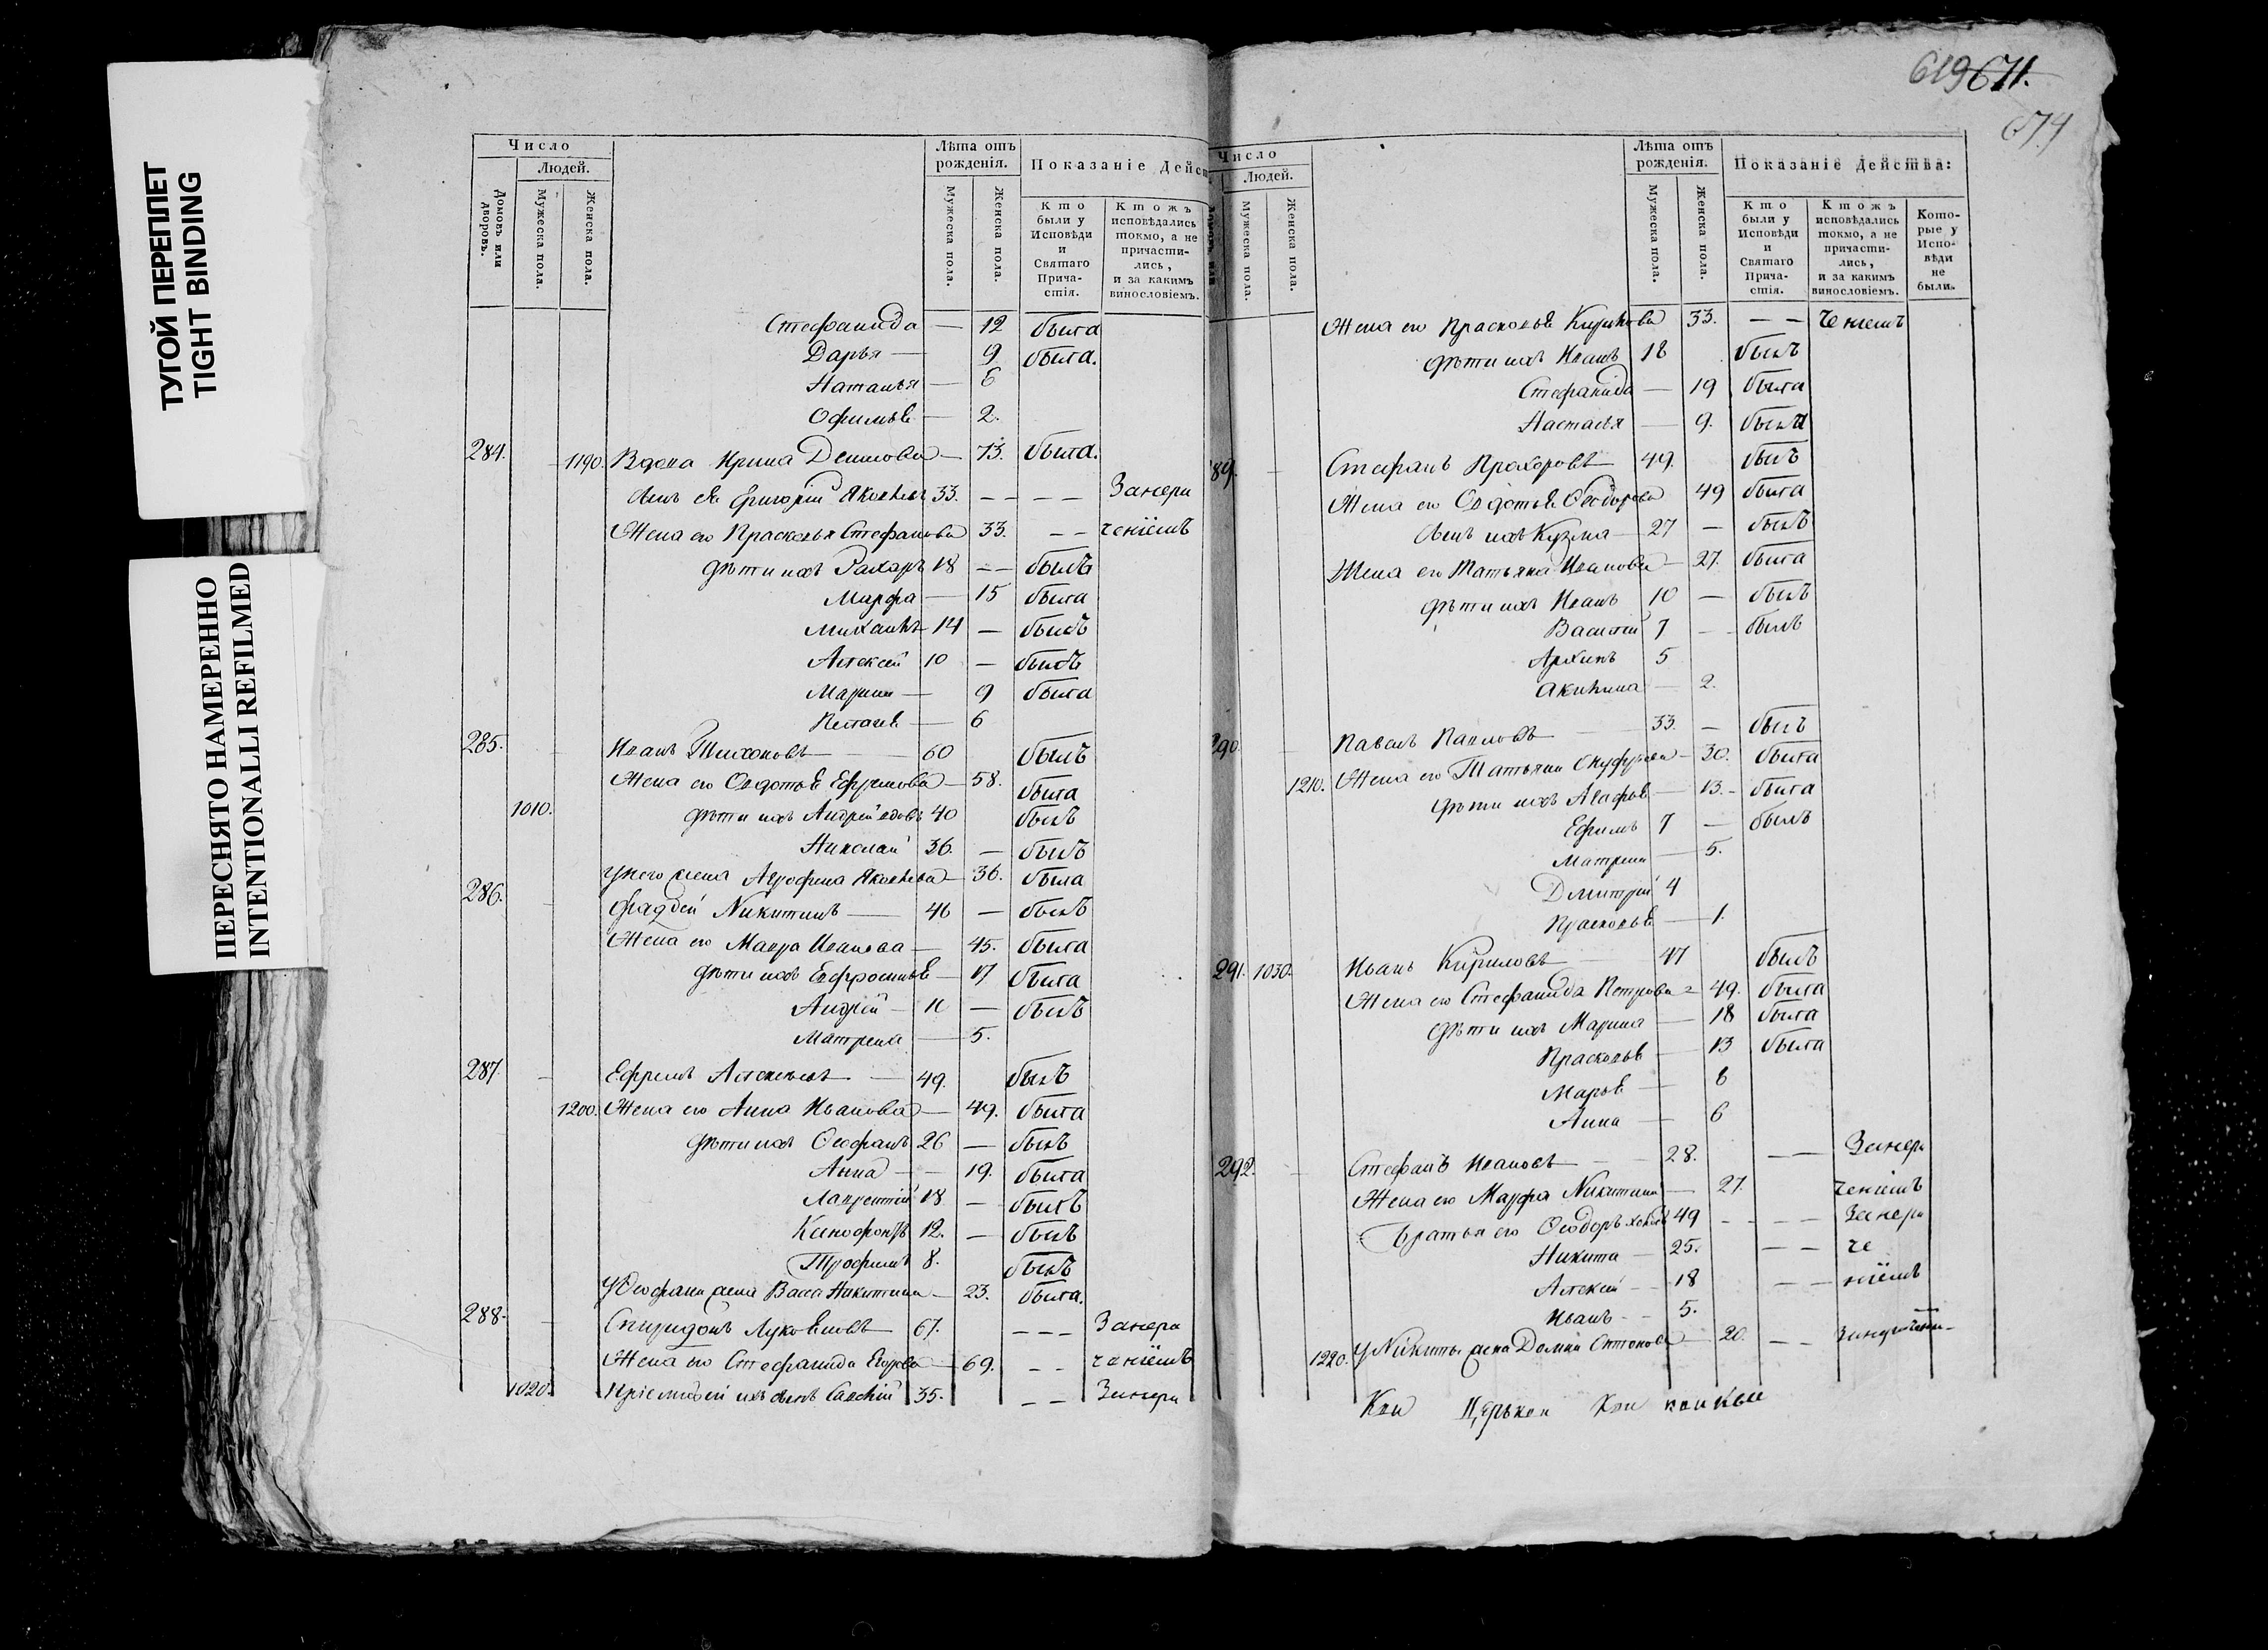 ТУГОЙ ПЕРЕПЛЕТ
TIGHT BINDING
ПЕРЕСНЯТО НАМЕРЕННО
INTENTIONALLI REFILMED
Число
Людей.
Домовъ или дворовъ.
Мужеска пола.
Женска пола.
Лѣта отъ рожденія.
Мужеска пола.
Женска пола.
Показаніе Дейст
Кто были у Исповѣди и Святаго Прича-стія.
Ктожъ исповѣдались токмо, а не причасти-лись, и за какимъ винословіемъ.
Стефанида — 12 была
Дарья — 9 была.
Наталья — 6
Офимья — 2.
284. 1190. Вдова Ирина Денисова — 73. была.
сынъ ея Григорій Яковлевъ 33. – – – – Занера
Жена его Прасковья Стефанова 33. – – ченіемъ
дѣти ихъ Захаръ 18 – – былъ
Марфа — 15 была
Михаилъ 14 — былъ
Алексей 10 — былъ
Марина — 9 была
Пелагея — 6
285. Иванъ Тихоновъ — 60 былъ
Жена его Овдотья Ефремова — 58. была
1010. дѣти ихъ Андрей вдовъ 40 былъ
Николай 36. — былъ
у него жена Агрофена Яковлева — 36. была
286. Фаддей Никитинъ — 46 — былъ
Жена его Мавра Иванова — 45. была
дѣти ихъ Евфросинья — 17 была
Андрей — 10 — былъ
Матрена — 5.
287 Ефремъ Алексеевъ — 49. былъ
1200. Жена его Анна Иванова — 49. была
дѣти ихъ Феофанъ 26 — былъ
Анна — 19. была
Лаврентій 18 — былъ
Ксенофонтъ 12. — былъ
Трофимъ 8. былъ
У Феофана жена Васса Никитина — 23. была.
288. Спиридонъ Луковновъ 67. – – – Занера
Жена его Стефанида Егорова — 69. – – ченіемъ
1020. Пріемный ихъ сынъ 35. – – Занера
619 671.
674
Число
Людей.
Мужеска пола.
Женска пола.
Лѣта отъ рожденія.
Мужеска пола.
Женска пола.
Показаніе Дейсшва:
Кто были у Исповѣди и Святаго Прича-стія.
Ктожъ исповѣдались токмо, а не причасти-лись, и за какимъ винословіемъ.
Кото-рые у Испо-вѣди не были.
Жена его Прасковья Кирилова 33. – – ченіемъ
дѣти ихъ Иванъ 18 былъ
Стефанида — 19 была
Настасья — 9. была
89. Стефанъ Прохоровъ — 49. былъ
Жена его Овдотья Феодорова 49 была
сынъ ихъ Кузма — 27 — былъ
Жена его Татьяна Иванова — 27. была
дѣти ихъ Иванъ 10 — былъ
Василій 7 – – былъ
Архипъ 5
Акилина — 2.
290. Павелъ Павловъ — 33. — былъ
1210. Жена его Татьяна Онуфрева — 30. была
дѣти ихъ Агафья — 13. – была
Ефимъ 7 — былъ
Матрена — 5.
Дмитрій 4
Прасковья — 1.
291. 1030. Иванъ Кириловъ — 47 былъ
Жена его Стефанида Петрова – 49. была
дѣти ихъ Марина — 18 была
Прасковья — 13 была
Марья — 8
Анна — 6
292. Стефанъ Ивановъ — 28. – – Занера
Жена его Марфа Никитина — 27. ченіемъ
Братья его Феодоръ холостъ 49 – – – – Занера
Никита — 25. – – че
Алексей — 18 – – ніемъ
Иванъ – – 5.
1220. У Никиты жена Домна — 20. – –
Церкви